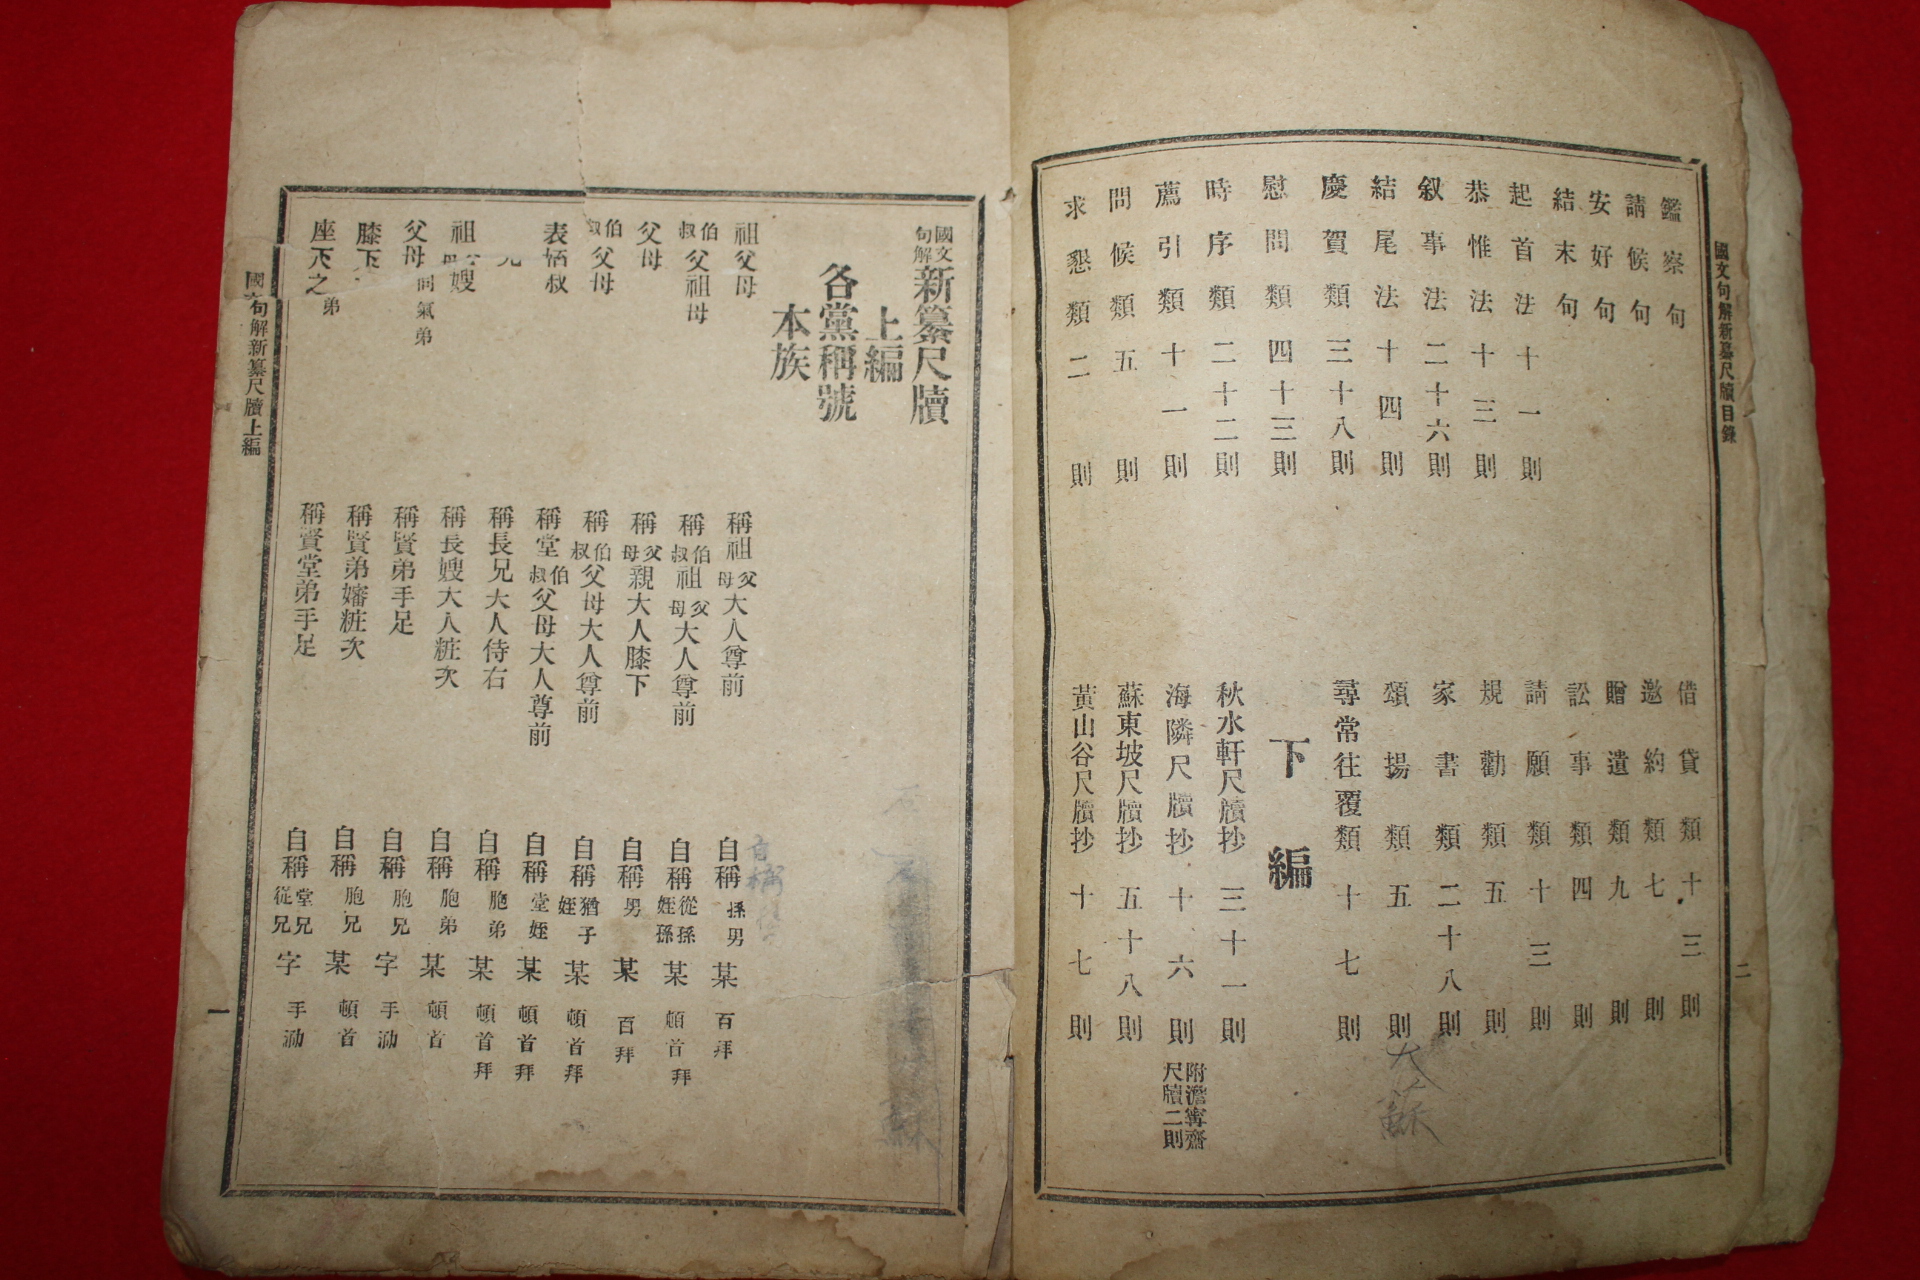 國文句解新纂尺牘目錄
二
鑑察句
請候句
安好句
結末句
起首法十一則
恭惟法十三則
叙事法二十六則
結尾法十四則
慶賀類三十八則
慰問類四十三則
時序類二十二則
薦引類十一則
問候類五則
求懇類二則
借貸類十三則
邀約類七則
贈遺類九則
訟事類四則
請願類十三則
規勸類五則
家書類二十八則
頌揚類五則
尋常往覆類十七則
下編
秋水軒尺牘抄三十一則
海隣尺牘抄十六則 附澹寗齋尺牘二則
蘇東坡尺牘抄五十八則
黃山谷尺牘抄十七則
大蘇
國文句解新纂尺牘
上編
各黨稱號
本族
祖父母 稱祖父母大人尊前 自稱孫男某百拜
伯叔父祖母 稱伯叔祖父母大人尊前 自稱從孫姪孫某頓首拜
父母 稱父母親大人膝下 自稱男某百拜
伯叔父母 稱伯叔父母大人尊前 自稱猶子姪某頓首拜
表 叔 稱堂伯叔父母大人尊前 自稱堂姪某頓首拜
兄 稱長兄大人侍右 自稱胞弟某頓首拜
祖 嫂 稱長嫂大人粧次 自稱胞弟某頓首
父母 同氣弟 稱賢弟手足 自稱胞兄字手泐
膝下 稱賢弟嬸粧次 自稱胞兄某頓首
座下之弟 稱賢堂弟手足 自稱堂兄從兄字手泐
自稱
國文句解新纂尺牘上編
一